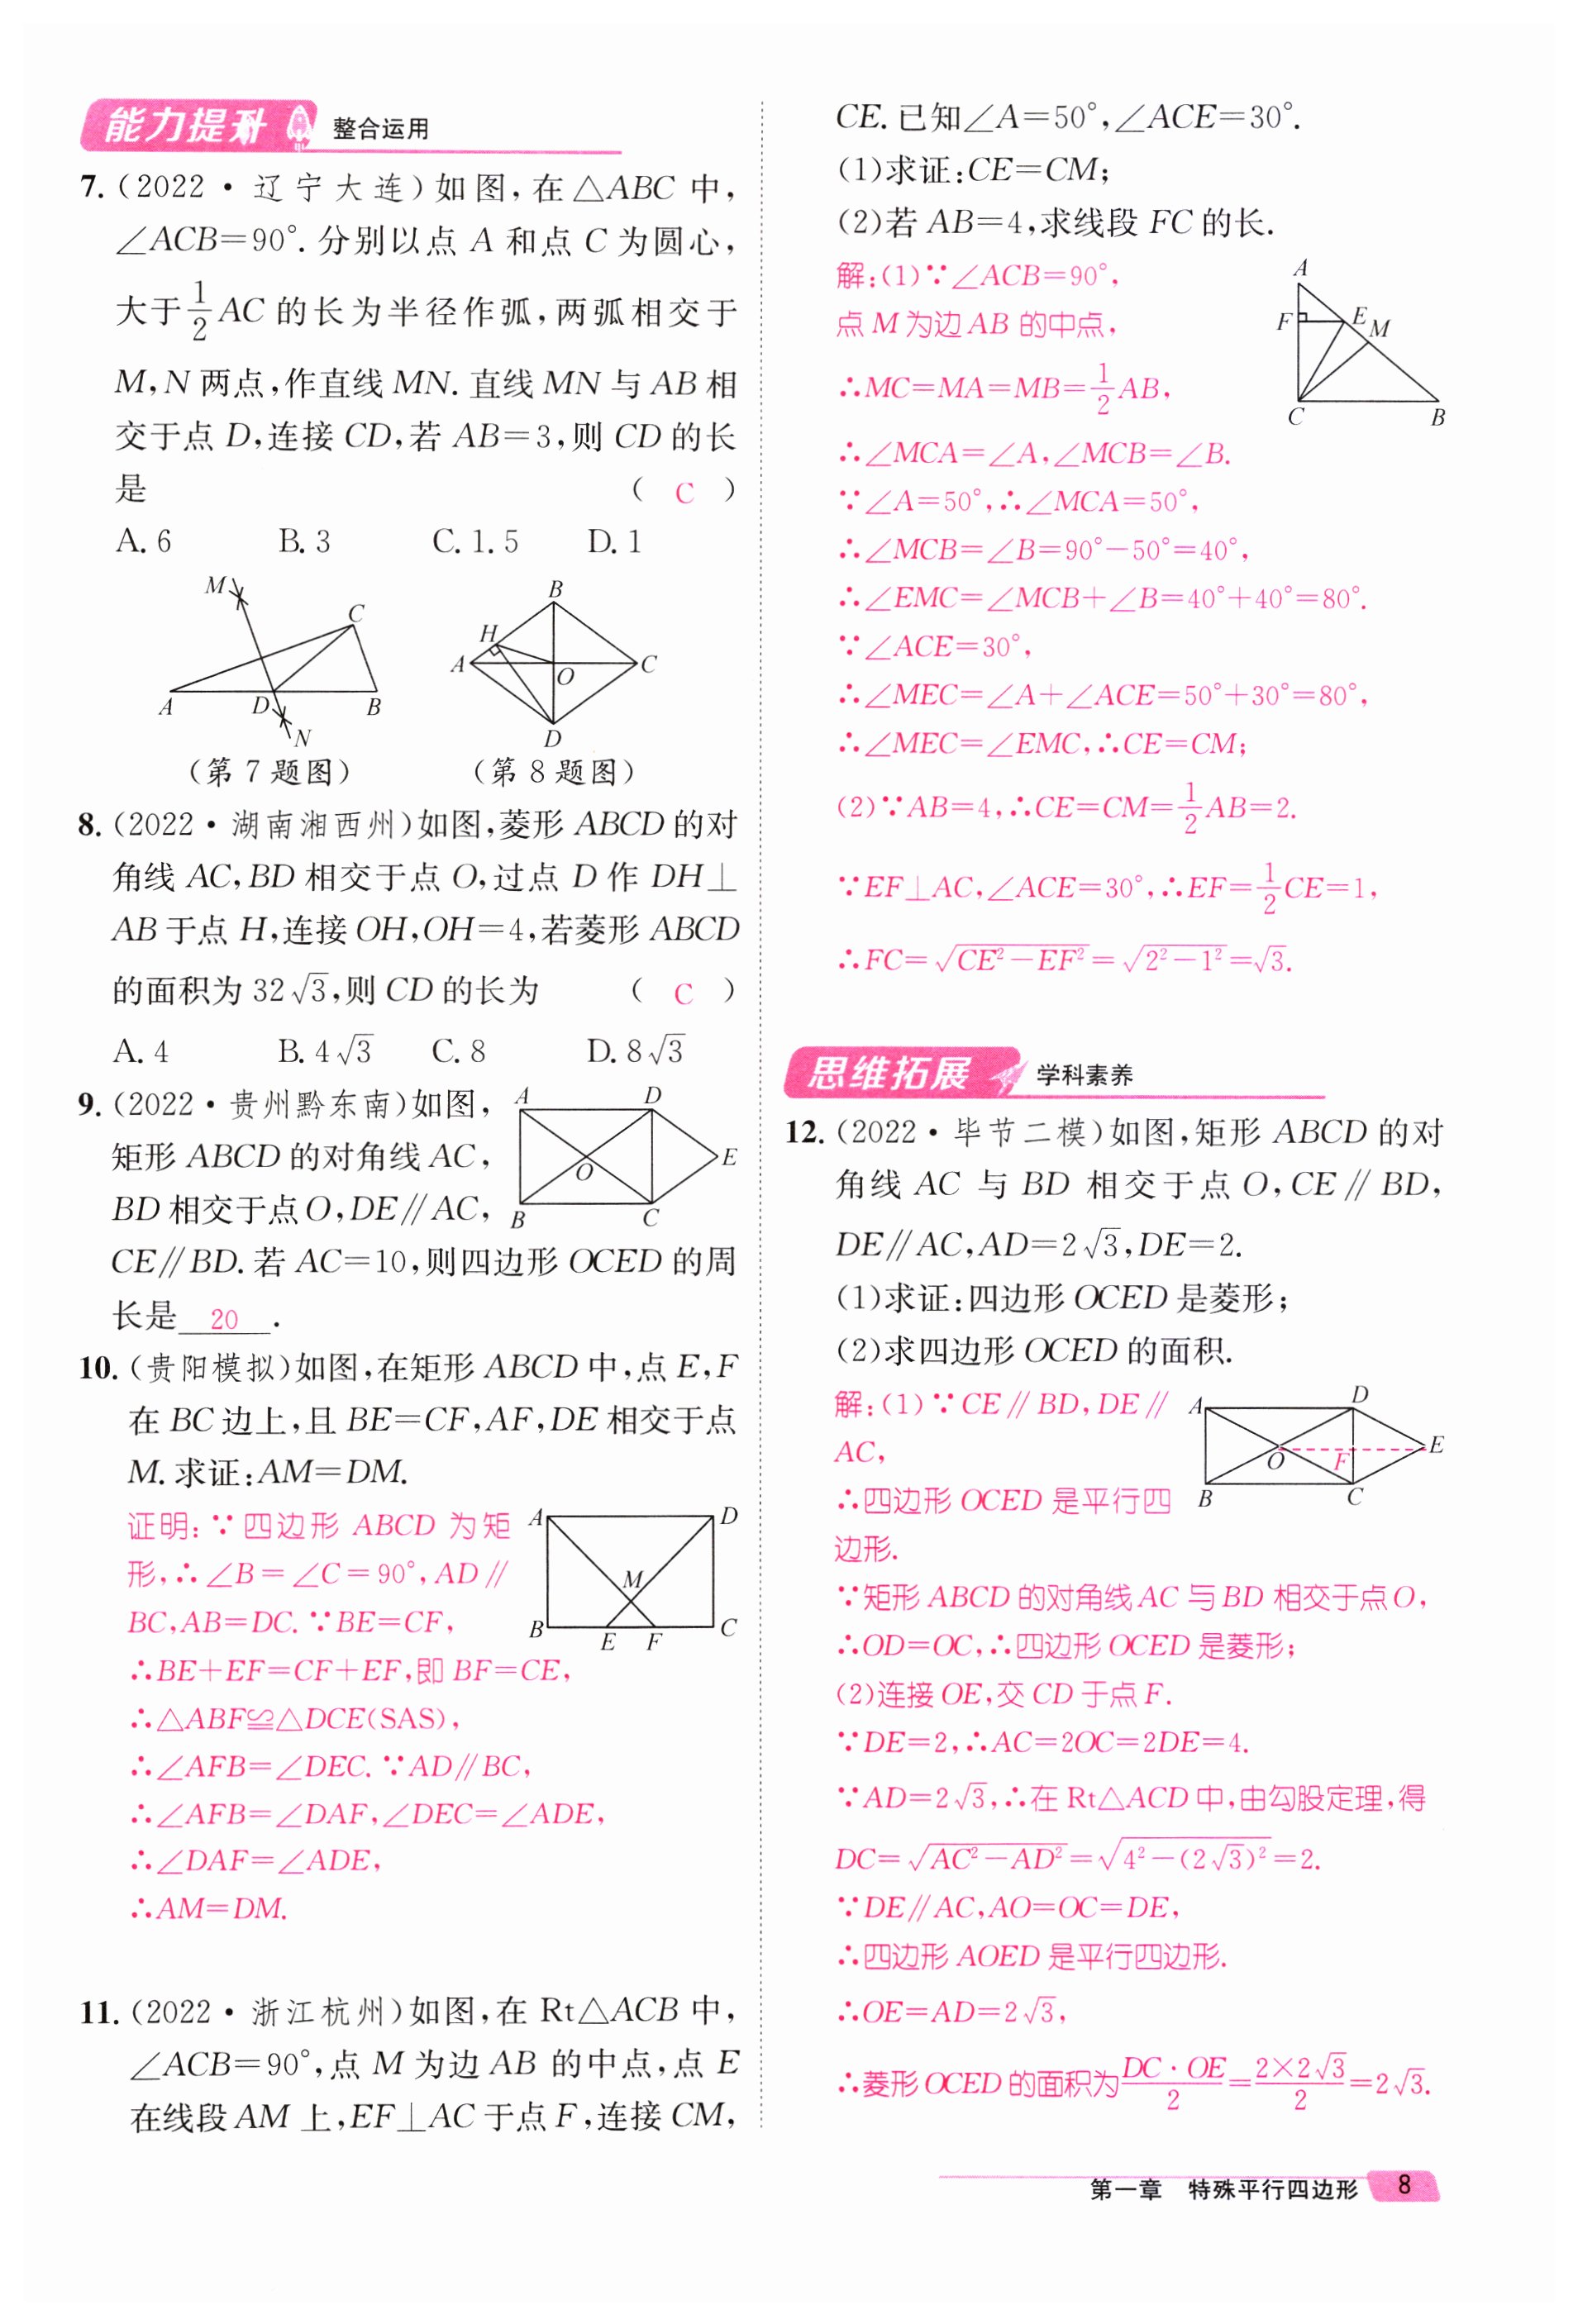 能力提升 整合运用
7.(2022·辽宁大连)如图,在△ABC 中,
∠ACB=90°.分别以点 A 和点 C 为圆心,
大于$\frac{1}{2}$AC 的长为半径作弧,两弧相交于
M,N 两点,作直线 MN.直线 MN 与 AB 相
交于点 D,连接 CD,若 AB=3,则 CD 的长
是 ( C )
A. 6 B. 3 C. 1.5 D. 1
M C A D B N
B H A O C D
(第 7 题图) (第 8 题图)
8.(2022·湖南湘西州)如图,菱形 ABCD 的对
角线 AC,BD 相交于点 O,过点 D 作 DH⊥
AB 于点 H,连接 OH,OH=4,若菱形 ABCD
的面积为 32√3,则 CD 的长为 ( C )
A. 4 B. 4√3 C. 8 D. 8√3
9.(2022·贵州黔东南)如图,
矩形 ABCD 的对角线 AC,
BD 相交于点O,DE∥AC,
A D O E B C
CE∥BD.若 AC=10,则四边形 OCED 的周
长是 20 .
10.(贵阳模拟)如图,在矩形 ABCD 中,点 E,F
在 BC 边上,且 BE=CF,AF,DE 相交于点
M.求证:AM=DM.
证明:∵四边形 ABCD 为矩
形,∴∠B=∠C=90°,AD∥
BC,AB=DC.∵BE=CF,
A D M B E F C
∴BE+EF=CF+EF,即 BF=CE,
∴△ABF≌△DCE(SAS),
∴∠AFB=∠DEC.∵AD∥BC,
∴∠AFB=∠DAF,∠DEC=∠ADE,
∴∠DAF=∠ADE,
∴AM=DM.
11.(2022·浙江杭州)如图,在 Rt△ACB 中,
∠ACB=90°,点 M 为边 AB 的中点,点 E
在线段 AM 上,EF⊥AC 于点 F,连接 CM,
CE.已知∠A=50°,∠ACE=30°.
(1)求证:CE=CM;
(2)若 AB=4,求线段 FC 的长.
解:(1)∵∠ACB=90°,
点 M 为边 AB 的中点,
A F E M C B
∴MC=MA=MB=$\frac{1}{2}$AB,
∴∠MCA=∠A,∠MCB=∠B.
∵∠A=50°,∴∠MCA=50°,
∴∠MCB=∠B=90°-50°=40°,
∴∠EMC=∠MCB+∠B=40°+40°=80°.
∵∠ACE=30°,
∴∠MEC=∠A+∠ACE=50°+30°=80°,
∴∠MEC=∠EMC,∴CE=CM;
(2)∵AB=4,∴CE=CM=$\frac{1}{2}$AB=2.
∵EF⊥AC,∠ACE=30°,∴EF=$\frac{1}{2}$CE=1,
∴FC=$\sqrt{CE^2-EF^2}$=$\sqrt{2^2-1^2}$=√3.
思维拓展 学科素养
12.(2022·毕节二模)如图,矩形 ABCD 的对
角线 AC 与 BD 相交于点 O,CE∥BD,
DE∥AC,AD=2√3,DE=2.
(1)求证:四边形 OCED 是菱形;
(2)求四边形 OCED 的面积.
解:(1)∵CE∥BD,DE∥
AC,
∴四边形 OCED 是平行四
边形.
A D O F E B C
∵矩形 ABCD 的对角线 AC 与 BD 相交于点O,
∴OD=OC,∴四边形 OCED 是菱形;
(2)连接 OE,交 CD 于点 F.
∵DE=2,∴AC=2OC=2DE=4.
∵AD=2√3,∴在 Rt△ACD 中,由勾股定理,得
DC=$\sqrt{AC^2-AD^2}$=$\sqrt{4^2-(2\sqrt{3})^2}$=2.
∵DE∥AC,AO=OC=DE,
∴四边形 AOED 是平行四边形.
∴OE=AD=2√3,
∴菱形 OCED 的面积为$\frac{DC·OE}{2}$=$\frac{2×2\sqrt{3}}{2}$=2√3.
第一章 特殊平行四边形 8